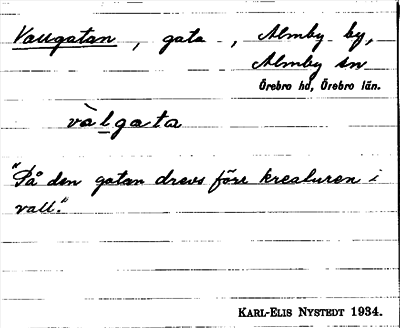 Vallgatan, gata, Almby by,
Almby sn
Örebro hd, Örebro län.
vàlgata
"På den gatan drevs förr kreaturen i
vall."
KARL-ELIS NYSTEDT 1934.